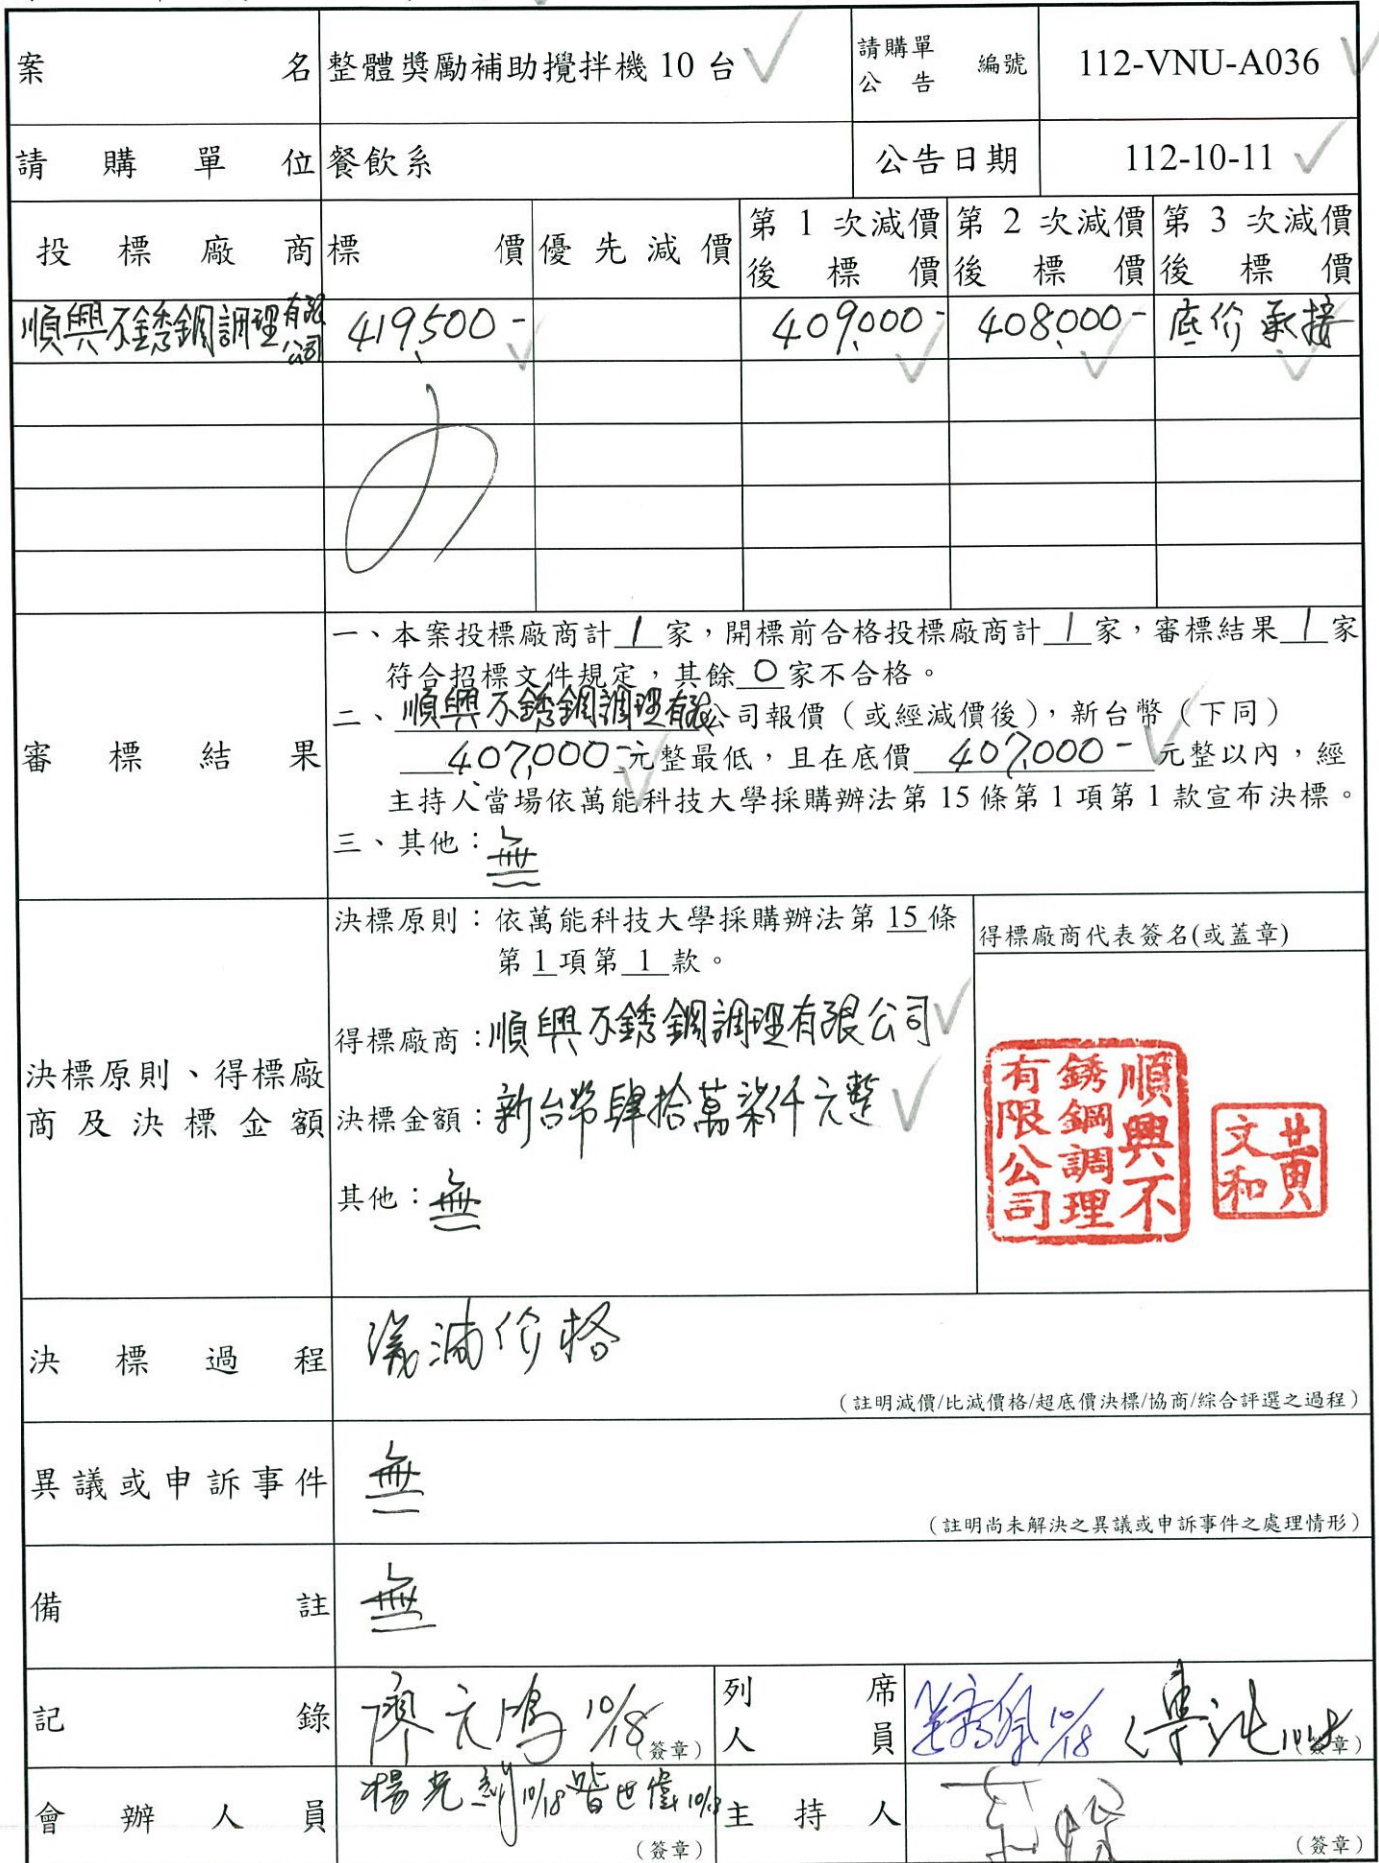 案名 整體獎勵補助攪拌機 10 台 請購單公告 編號 112-VNU-A036
請購單位 餐飲系 公告日期 112-10-11
投標廠商 標價 優先減價 第 1 次減價後標價 第 2 次減價後標價 第 3 次減價後標價
順興不銹鋼調理有限公司 419,500- 409,000- 408,000- 底价承接
審標結果
一、本案投標廠商計 1 家，開標前合格投標廠商計 1 家，審標結果 1 家
符合招標文件規定，其餘 0 家不合格。
二、順興不銹鋼調理有限公司報價（或經減價後），新台幣（下同）
407,000-元整最低，且在底價 407,000- 元整以內，經
主持人當場依萬能科技大學採購辦法第 15 條第 1 項第 1 款宣布決標。
三、其他：無
決標原則、得標廠商及決標金額
決標原則：依萬能科技大學採購辦法第 15 條
第 1 項第 1 款。
得標廠商：順興不銹鋼調理有限公司
決標金額：新台幣肆拾萬柒仟元整
其他：無
得標廠商代表簽名(或蓋章)
順興不
銹鋼調理
有限公司
黃
文和
決標過程 議減价格
（註明減價/比減價格/超底價決標/協商/綜合評選之過程）
異議或申訴事件 無
（註明尚未解決之異議或申訴事件之處理情形）
備註 無
記錄 廖元鴻 10/18 （簽章） 列席人員 10/18 （簽章）
會辦人員 楊光 10/18 世偉 10/18 （簽章） 主持人 （簽章）